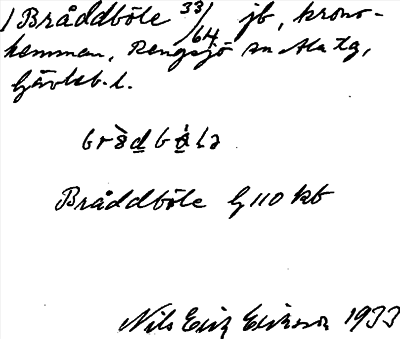 1 Bråddböle 33/64 jb, krono-
hemman, Rengsjö sn Ala tg,
Gävleb. l.
Bråddböle G 110 kb
Nils Erik Eriksson 1933